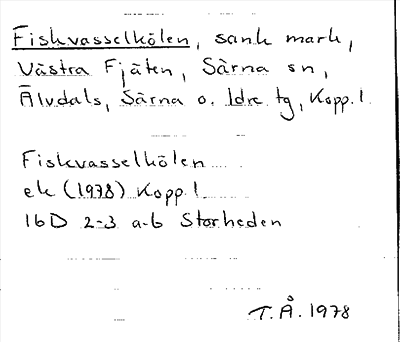 Fiskvasselkölen, sank mark,
Västra Fjäten, Särna sn,
Älvdals, Särna o. Idre tg, Kopp. l.
Fiskvasselkölen
ek (1978) Kopp. l.
16D 2-3 a-b Storheden
T.Å. 1978